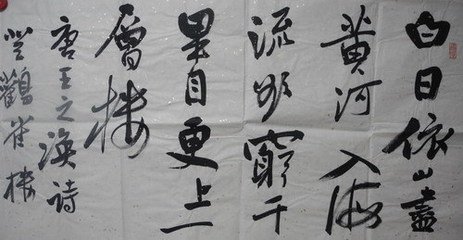 白日依山盡
黄河入海
流欲窮千
里目更上一
層楼
唐王之渙诗
登鸛雀楼